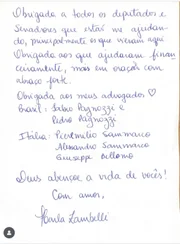 Obrigada a todos os deputados e
Senadores que estão me ajudan-
do, principalmente os que vieram aqui
Obrigada aos que ajudaram finan
ceiramente, mas em oração com
abraço forte.
Obrigada aos meus advogados ♡
Brasil: Fabio Pagnozzi e
Pedro Pagnozzi
Itália: Pieremilio Sammarco
Alessandro Sammarco
Giuseppe
Deus abençoe a vida de vocês!
Com amor,
Zambelli